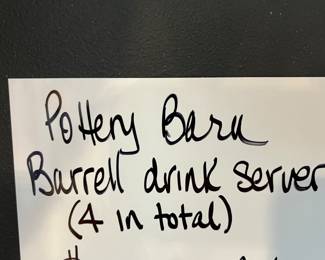 Pottery Barn
Barrell drink server
(4 in total)